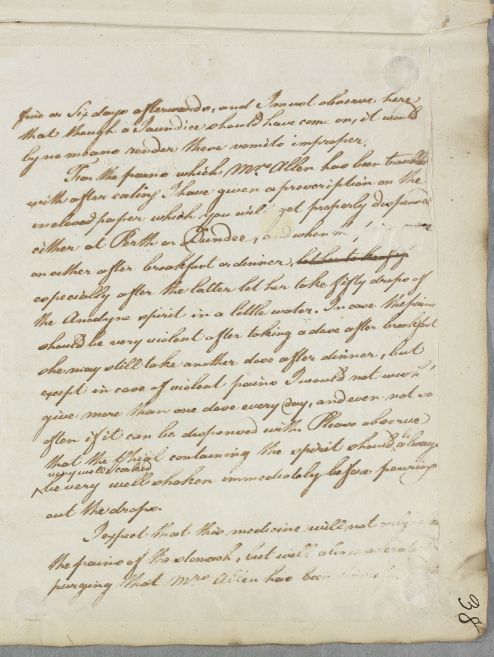 five or Six days afterwards, and I must observe here
that though a Jaundice should have come on, it would
by no means render these vomits improper.
For the pains which Mrs Allen has been troubled
with after eating I have given a prescription on the
inclosed paper which you will get properly dispensed
either at Perth or Dundee, and when
another after breakfast or dinner,
especially after the latter let her take fifty drops of
the Anodyne spirit in a little water. In case the pains
should be very violent after taking a dose after breakfast
she may still take another dose after dinner, but
except in case of violent pains I would not wish
give more than one dose every day, and even not so
often if it can be dispensed with. Please observe
that the Phial containing the spirit should be always
very well corked
be very well shaken immediately before pouring
out the drops.
I expect that this medicine will not only
the pains of the stomach, but will also
purging that Mrs Allen has been
38